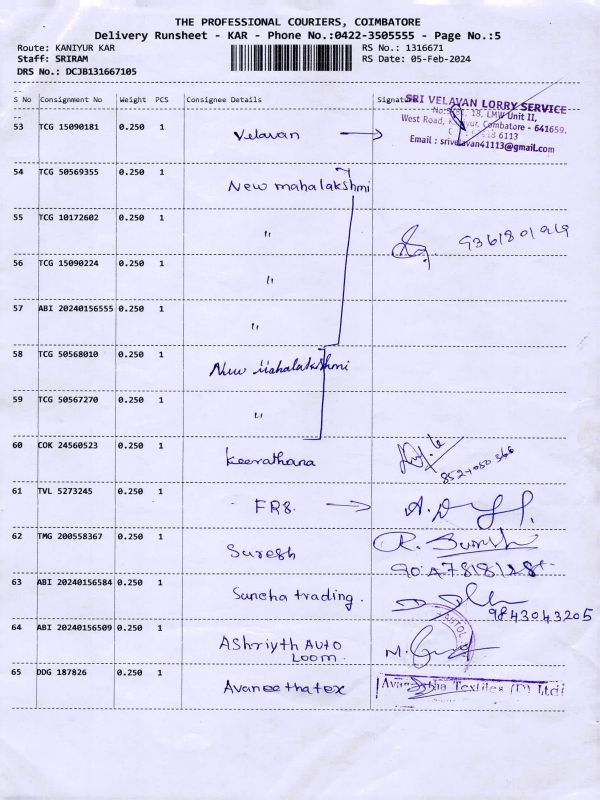 THE PROFESSIONAL COURIERS, COIMBATORE
Delivery Runsheet - KAR - Phone No.:0422-3505555 - Page No.:5
Route: KANIYUR KAR
RS No.: 1316671
Staff: SRIRAM
RS Date: 05-Feb-2024
DRS No.: DCJB131667105
S No Consignment No Weight PCS Consignee Details Signature
SRI VELAVAN LORRY SERVICE
18, LMW Unit II,
West Road, Coimbatore - 641659.
6113
Email : srivelavan41113@gmail.com
53 TCG 15090181 0.250 1 Velavan
54 TCG 50569355 0.250 1 New mahalakshmi
55 TCG 10172602 0.250 1 "
56 TCG 15090224 0.250 1 "
57 ABI 20240156555 0.250 1 "
58 TCG 50568010 0.250 1 New Mahalakshmi
59 TCG 50567270 0.250 1 "
60 COK 24560523 0.250 1 Keerathana
61 TVL 5273245 0.250 1 FR8.
62 TMG 200558367 0.250 1 Suresh R. Suresh
63 ABI 20240156584 0.250 1 Suncha trading. 9843043205
64 ABI 20240156509 0.250 1 AShriyth AUTO
LOOM.
65 DDG 187826 0.250 1 Avaneethatex Textiles (P) Ltd